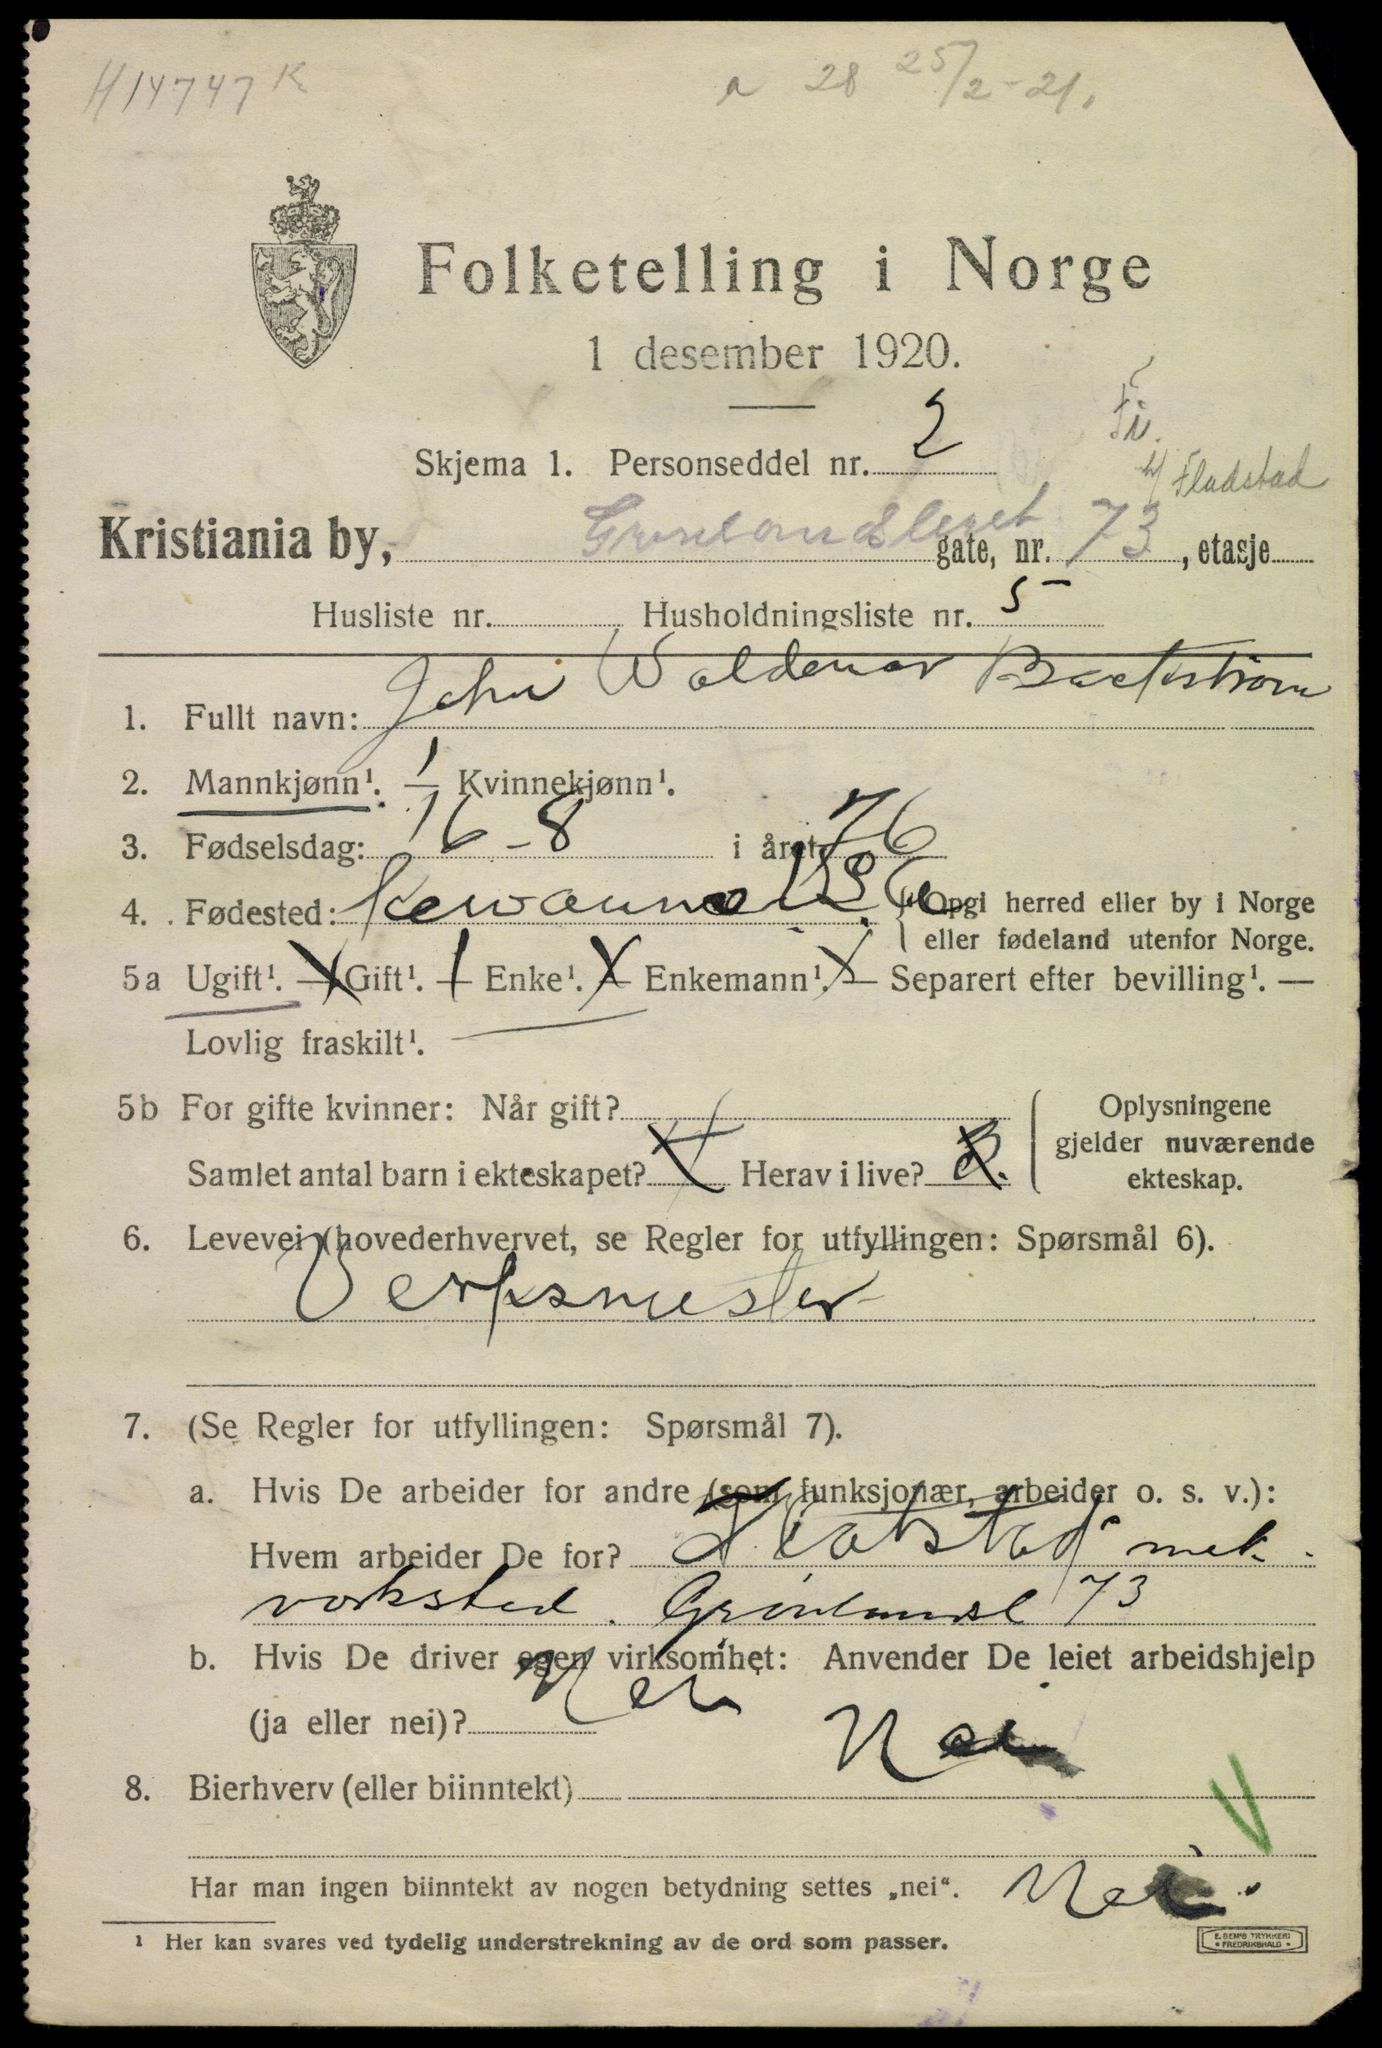 H 14747 K
28 25/2-21.
Folketelling i Norge
1 desember 1920.
Skjema 1. Personseddel nr. 2
Fladstad
Kristiania by, Grønlandsleret gate, nr. 73, etasje
Husliste nr. Husholdningsliste nr. 5
1. Fullt navn: John Waldemar Backstrøm
2. Mannkjønn¹. — Kvinnekjønn¹.
3. Fødselsdag: 16-8 i året 76
4. Fødested: Kewanne Opgi herred eller by i Norge
eller fødeland utenfor Norge.
5a Ugift¹. — Gift¹. — Enke¹. — Enkemann¹. — Separert efter bevilling¹. —
Lovlig fraskilt¹.
5b For gifte kvinner: Når gift?
Samlet antal barn i ekteskapet? Herav i live?
Oplysningene
gjelder nuværende
ekteskap.
6. Levevei (hovederhvervet, se Regler for utfyllingen: Spørsmål 6).
Verksmester
7. (Se Regler for utfyllingen: Spørsmål 7).
a. Hvis De arbeider for andre (som funksjonær, arbeider o. s. v.):
Hvem arbeider De for? mek.
verksted. Grønlandsl 73
b. Hvis De driver egen virksomhet: Anvender De leiet arbeidshjelp
(ja eller nei)? Nei
Nei
8. Bierhverv (eller biinntekt)
Har man ingen biinntekt av nogen betydning settes „nei“. Nei
¹ Her kan svares ved tydelig understrekning av de ord som passer.
E. SEM'S TRYKKERI
• FREDRIKSHALD •